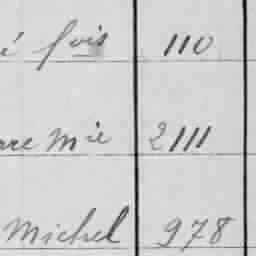 é fois 110
are Mie 2111
Michel 978